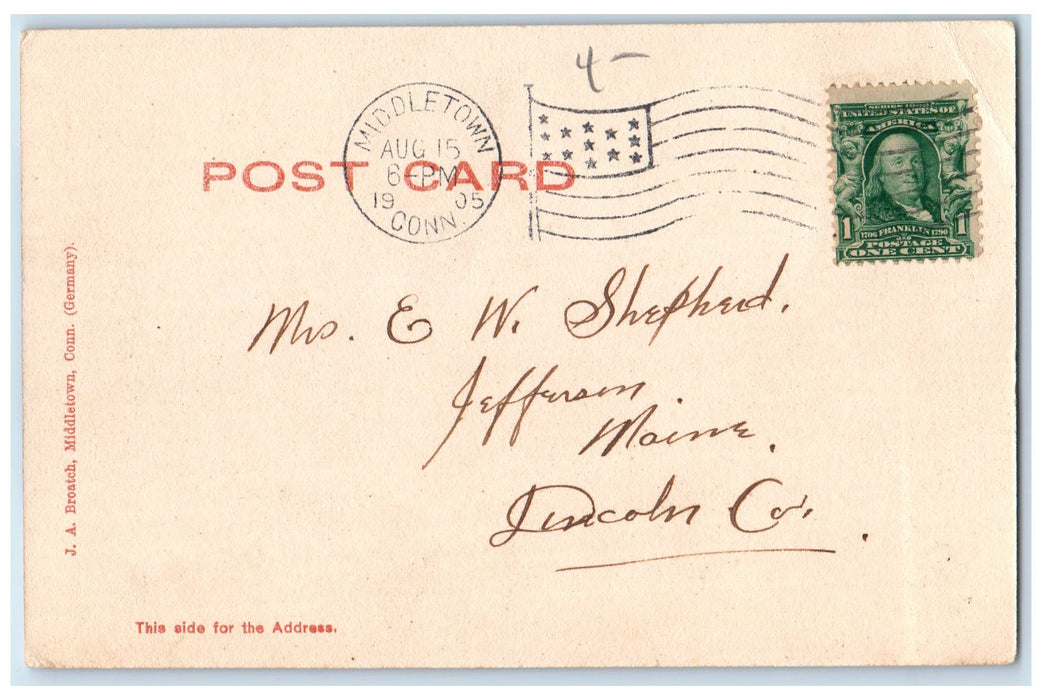 4-
MIDDLETOWN
AUG 15
6-PM
19 05
CONN.
POST CARD
SERIES 1902
UNITED STATES OF
AMERICA
1 1
1706 FRANKLIN 1790
POSTAGE
ONE CENT
Mrs. E W. Shepherd.
Jefferson
Maine.
Lincoln Co.
J. A. Broatch, Middletown, Conn. (Germany).
This side for the Address.